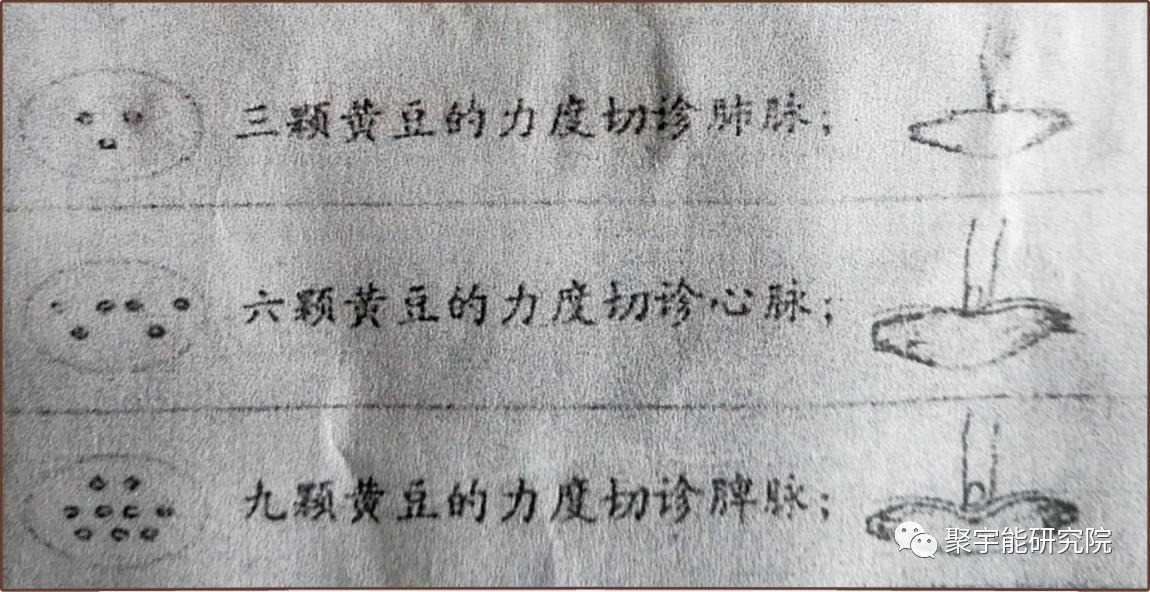 三颗黄豆的力度切诊肺脉；
六颗黄豆的力度切诊心脉；
九颗黄豆的力度切诊脾脉；
聚宇能研究院